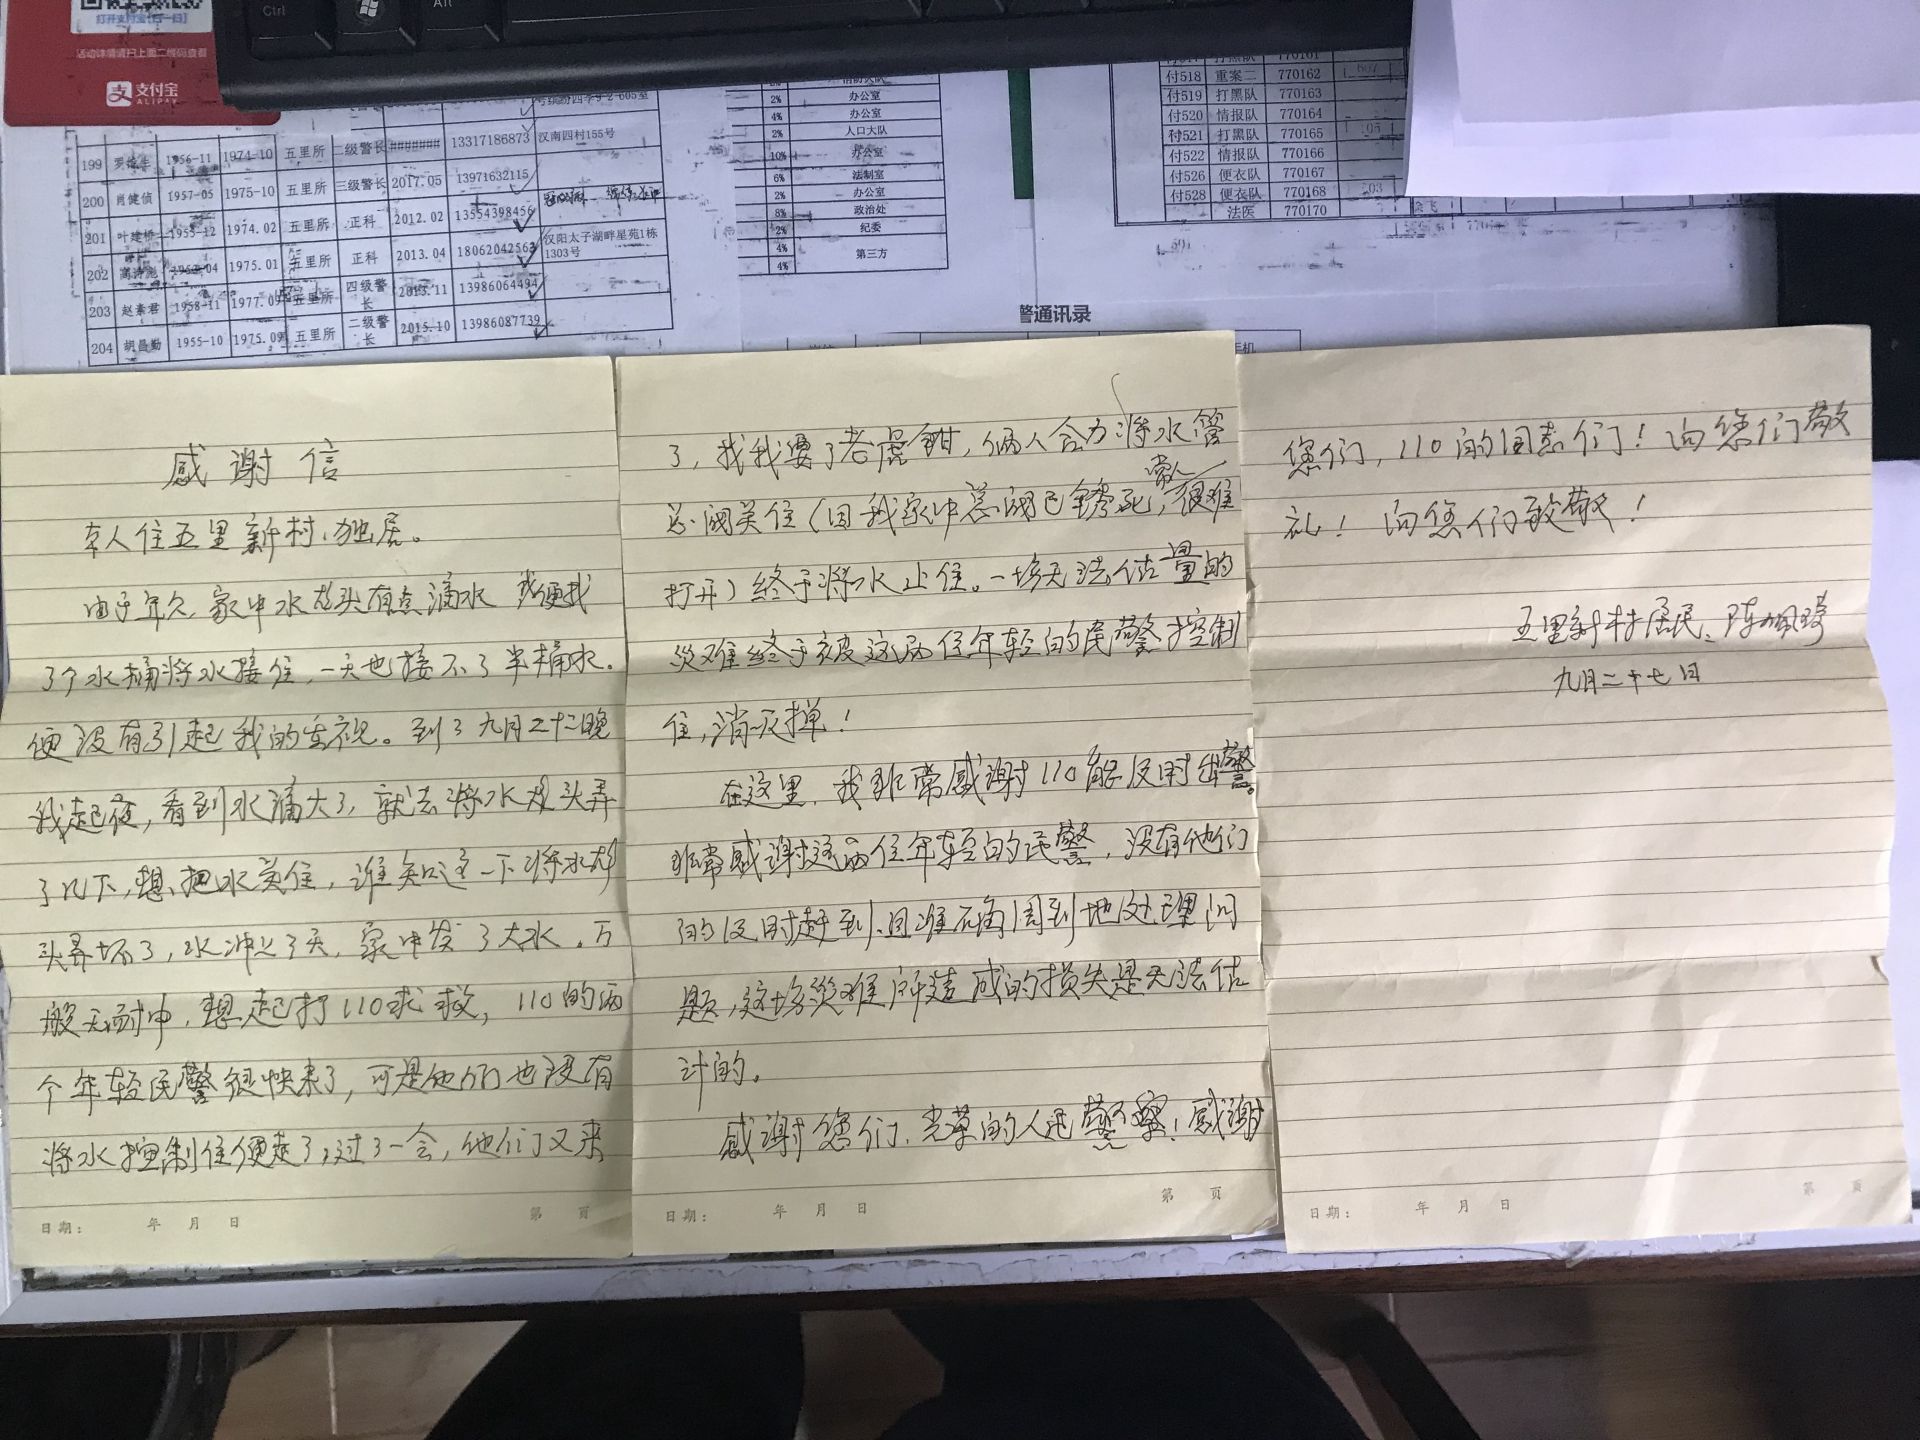 Ctrl
Alt
打开支付宝[扫一扫]
活动详情请扫上面二维码查看
支付宝
ALIPAY
号缤纷四季9-2-605室
199 1956-11 1974-10 五里所 二级警长 ####### 13317186873 汉南四村155号
200 肖健侦 1957-05 1975-10 五里所 三级警长 2017.05 13971632115
201 叶建桥 1955-12 1974.02 五里所 正科 2012.02 13554398456
202 1975.01 五里所 正科 2013.04 18062042563 汉阳太子湖畔星苑1栋1303号
203 赵素君 1958-11 1977.09 五里所 四级警长 2013.11 13986064494
204 胡昌勤 1955-10 1975.09 五里所 二级警长 2015.10 13986087739
2% 办公室
4% 办公室
2% 人口大队
10% 办公室
6% 法制室
2% 办公室
8% 政治处
2% 纪委
4% 第三方
4%
770161
付518 重案二 770162
付519 打黑队 770163
付520 情报队 770164
付521 打黑队 770165
付522 情报队 770166
付526 便衣队 770167
付528 便衣队 770168
法医 770170
警通讯录
手机
感谢信
本人住五里新村,独居。
由于年久,家中水龙头有点滴水 我便找
了个水桶将水接住,一天也接不了半桶水。
便没有引起我的重视。到了九月二十二晚
我起夜,看到水滴大了,就去将水龙头弄
了几下,想把水关住,谁知这一下将水龙
头弄坏了,水冲上了天,家中发了大水。万
般无耐中,想起打110求救,110的两
个年轻民警很快来了,可是他们也没有
将水控制住便走了,过了一会,他们又来
日期: 年 月 日 第 页
了,找我要了老虎钳,俩人合力将水管
总阀关住(因我家中总阀已锈死,常人很难
打开)终于将水止住。一场无法估量的
災难终于被这两位年轻的民警控制
住,消灭掉!
在这里,我非常感谢110能及时出警。
非常感谢这两位年轻的民警,没有他们
的及时赶到,且准确周到地处理问
题,这场災难所造成的损失是无法估
计的。
感谢您们,光荣的人民警察!感谢
日期: 年 月 日 第 页
您们,110的同志们!向您们敬
礼!向您们致敬!
五里新村居民:陈佩琦
九月二十七日
日期: 年 月 日 第 页